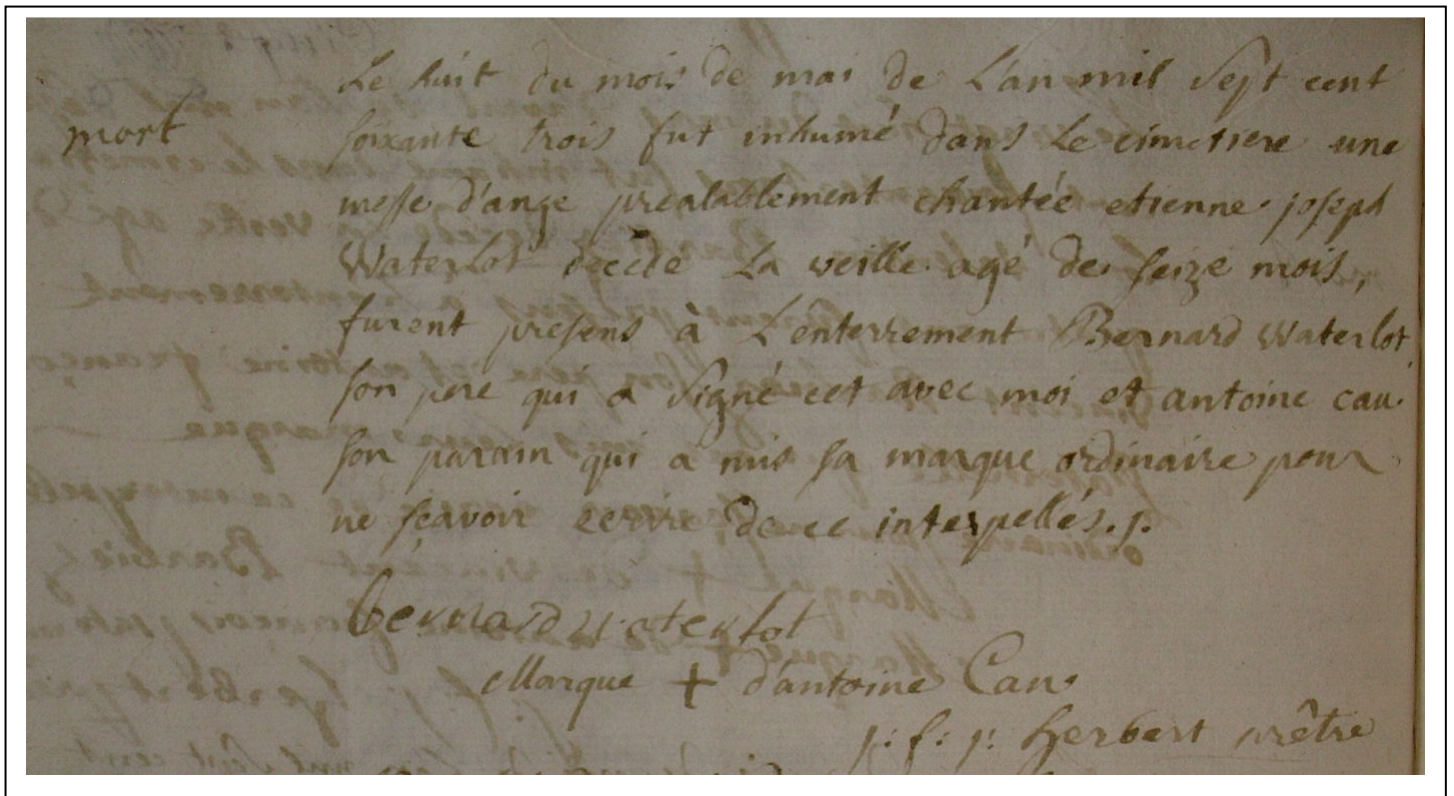 mort
Le huit du mois de mai de L'an mil Sept cent
soixante trois fut inhumé dans Le cimetiere une
messe d'ange prealablement chantée etienne joseph
Waterlot decede La veille agé de seize mois,
furent presens a L'enterrement Bernard Waterlot
son pere qui a Signé cet avec moi et antoine cau
son parain qui a mis sa marque ordinaire pour
ne sçavoir ecrire de ce interpellés
bernard Waterlot
Marque + d'antoine Cau
j: f: j: herbert prêtre